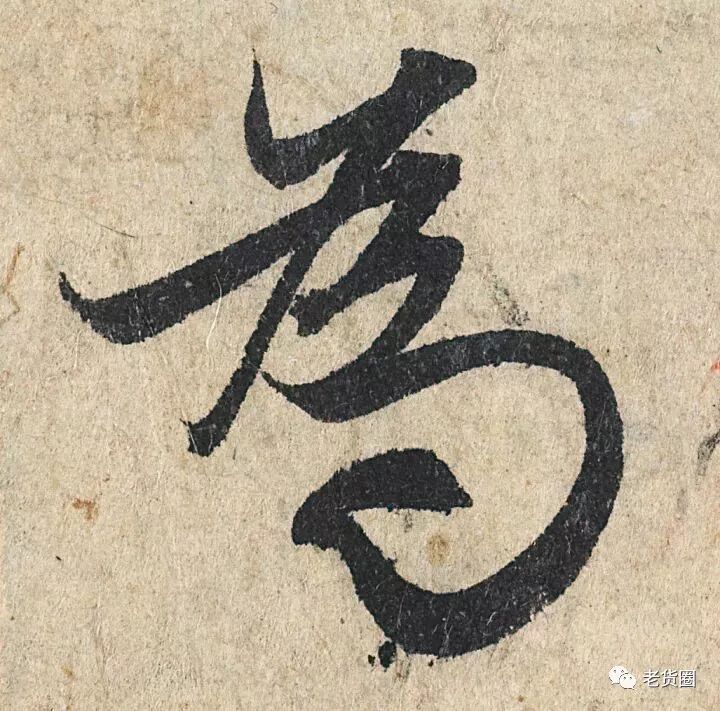 為
老货圈